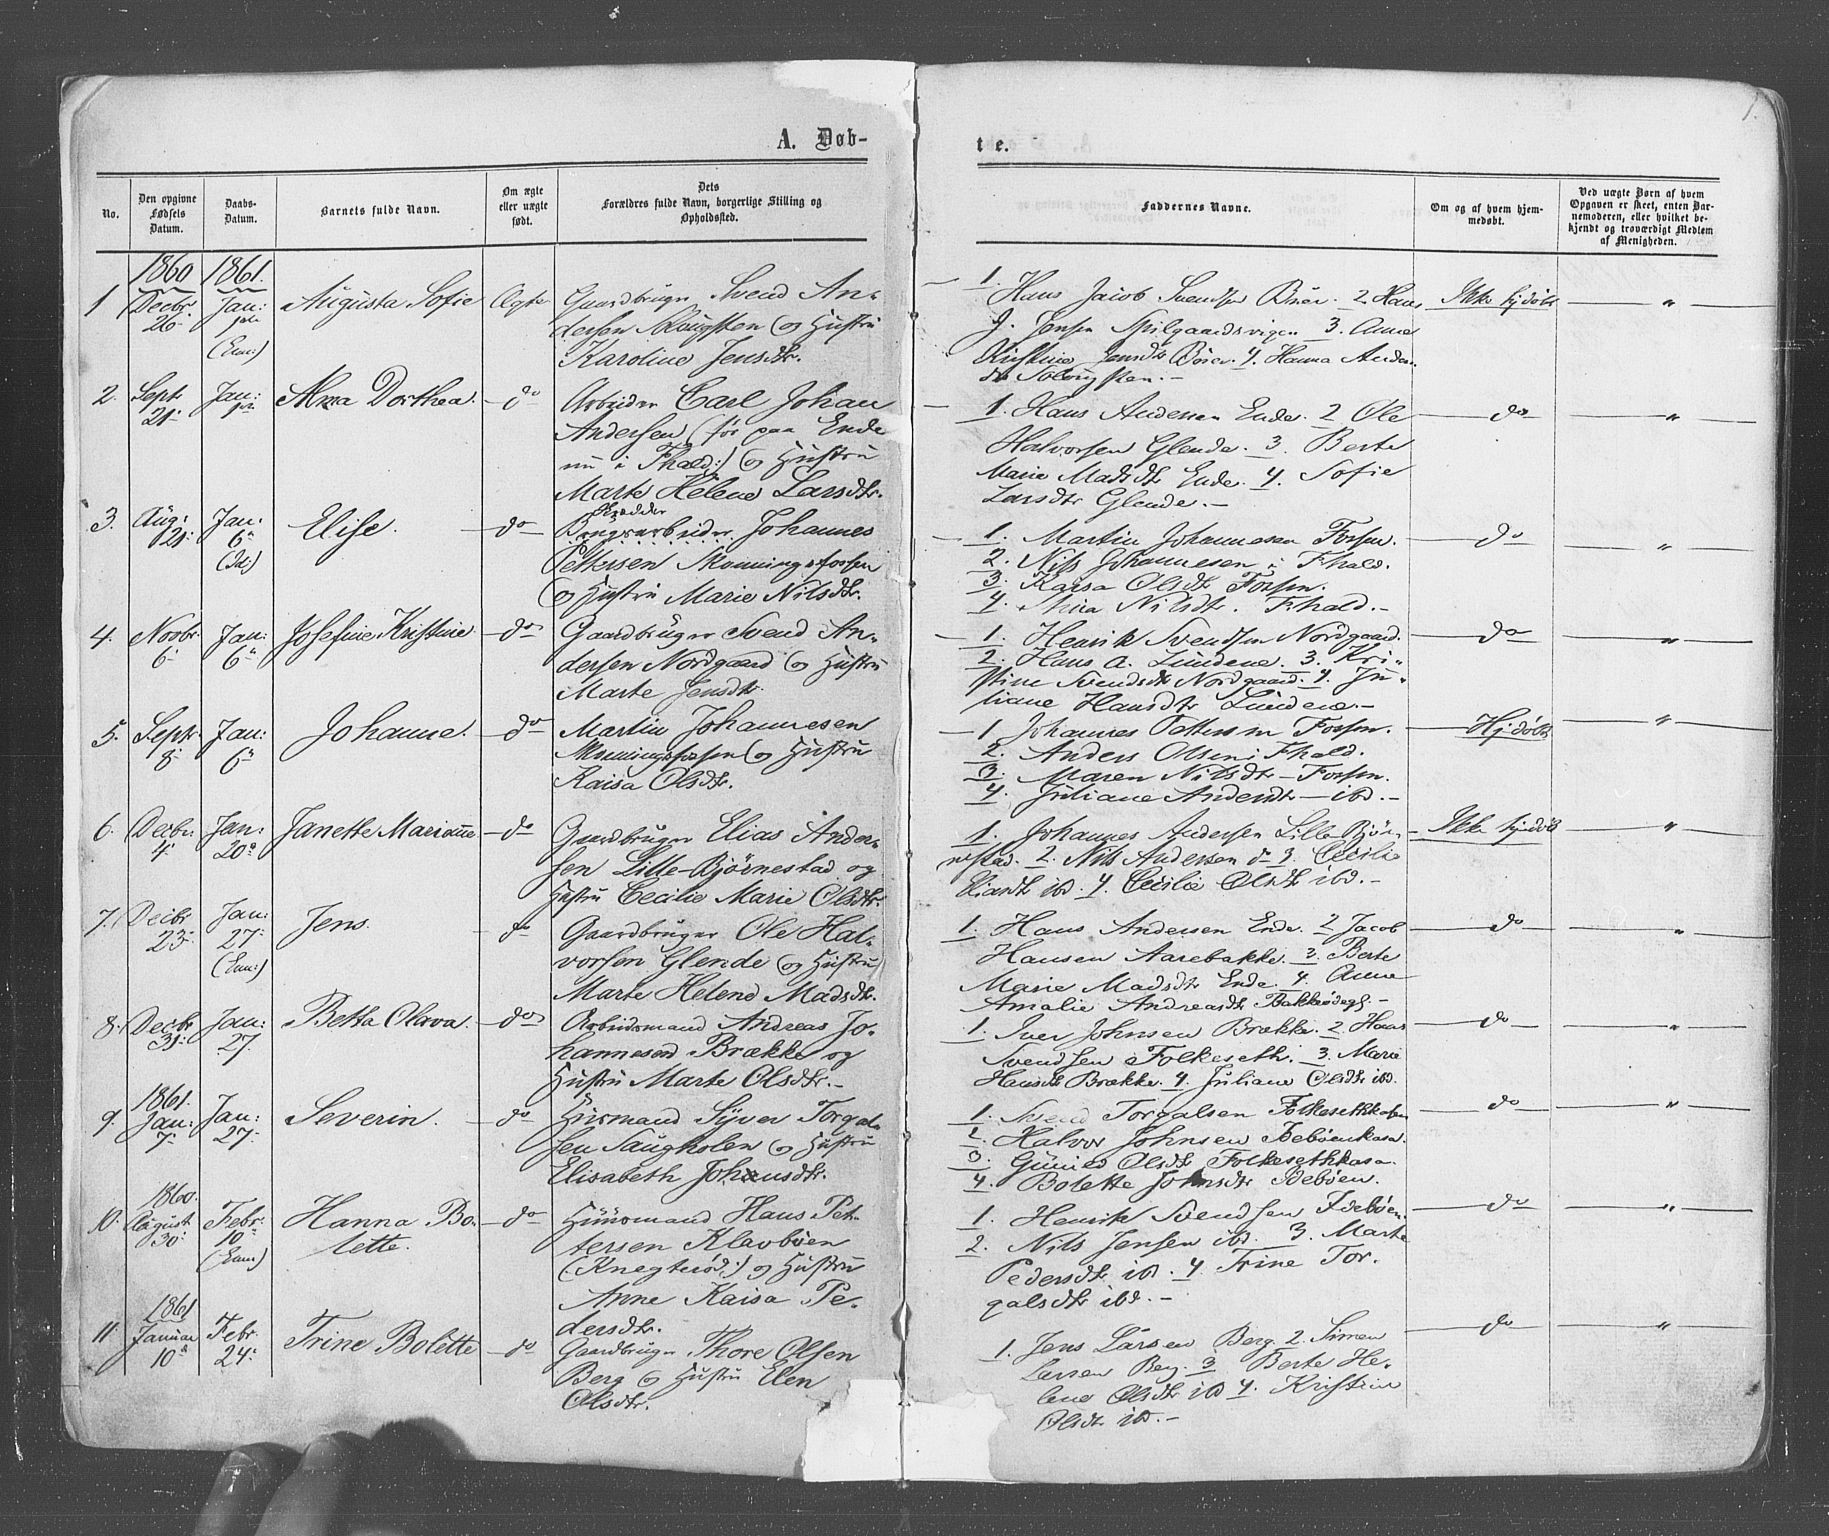 1.
A. Døb-
te.
No.
Den opgivne Fødsels Datum.
Daabs-Datum.
Barnets fulde Navn.
Om ægte eller uægte født.
Dets Forældres fulde Navn, borgerlige Stilling og Opholdssted.
Faddernes Navne.
Om og af hvem hjemmedøbt.
Ved uægte Børn af hvem Opgaven er skeet, enten Barnemoderen, eller hvilket bekjendt og troværdigt Medlem af Menigheden.
1860 1861.
1 Decbr. 26 Jan: (Enn:) Augusta Sofie Ægte
Gaardbruger Svend An-
dersen og Hustru
Karoline Jensdtr.
1. Hans Jacob Svendsen Büer. 2. Hans
J. Jensen Spilgaardsvigen 3. Anne
Kirstine Jensdtr Böer. 4. Hanna Anders-
dtr
Ikke hjdøbt "
2. Sept 21. Jan: Alma Dorthea. do
Arbeider Carl Johan
Andersen (før paa Ende
nu i Fhald:) og Hustru
Marte Helene Larsdtr.
1. Hans Andersen Ende. 2 Ole
Halvorsen Glende. 3. Berte
Marie Madsdtr Ende 4. Sofie
Larsdtr Glende. -
do "
3. Aug: 21. Jan: 6. Elise. do
Brugsarbeider Johannes
Pettersen Monningsfossen
og Hustru Marie Nilsdtr.
1. Martin Johannesen Fossen.
2. Nils Johannesen i Fhald.
3. Kaisa Olsdtr Fossen.
4. Mina Nilsdtr. Fhald. -
do "
4. Novbr. 6. Jan: 6. Josefine Kristine do
Gaardbruger Svend An-
dersen Nordgaard og Hustru
Marte Jensdtr.
1. Henrik Svendsen Nordgaard.
2. Hans A. Lundene. 3. Kri-
stine Svendsdtr Nordgaard. 4. Ju-
liane Hansdtr Lundene. -
do "
5. Septr. 8. Jan: 6. Johanne. do
Martin Johannesen
Monningsfossen og Hustru
Kaisa Olsdtr.
1 Johannes Pettersen Fossen.
2. Anders Olsen i Fhald.
3. Maren Nilsdtr - Fossen.
4. Juliane Andersdtr - ibd. -
Hjdøbt "
6. Decbr. 4. Jan: 20. Janette Marianne do
Gaardbruger Elias Ander-
sen Lille-Bjørnestad og
Hustru Cecilie Marie Olsdtr.
1. Johannes Andersen Lille Bjør-
nestad. 2. Nils Andersen do 3. Cecilie
Eliasdtr ibd. 4. Cecilie Olsdtr ibd. -
Ikke hjdøbt "
7. Decbr 23. Jan: 27. (Enn:) Jens. do
Gaardbruger Ole Hal-
vorsen Glende og Hustru
Marte Helene Madsdtr.
1. Hans Andersen Ende. 2 Jacob
Hansen Aarebakke. 3. Berte
Marie Madsdtr Ende 4. Anne
Amalie Andreasdtr
do "
8. Decbr 31. Jan: 27. Betta Olava. do
Arbeidsmand Andreas Jo-
hannesen Brække og
Hustru Marte Olsdtr. -
1. Iver Johnsen Brække. 2. Hans
Svendsen Folkeseth. 3. Marie
Hansdtr Brække. 4. Juliane Olsdtr ibd.
do "
1861.
9. Jan: 7. Jan: 27. Severin. do
Husmand Syver Torgal-
sen Saugholen og Hustru
Elisabeth Johnsdtr.
1. Svend Torgalsen
2. Halvor Johnsen
3. Gunild Olsdtr Folkesethkasa.
4. Bolette Johnsdtr Idebøen.
do "
1860.
10. August 30. Febr: 10. (Enn:) Hanna Bo-
lette. do
Huusmand Hans Pet-
tersen Klavbøen
(Knegterød:) og Hustru
Anne Kaisa Pe-
dersdtr.
1. Henrik Svendsen Idebøen.
2. Nils Jensen ibd. 3. Marte
Pedersdtr ibd. 4 Trine Tor-
galsdtr ibd. -
do "
1861
11. Januar 10. Febr. 24. Trine Bolette do
Gaardbruger Thore Olsen
Berg og Hustru Elen
Olsdtr.
1. Jens Larsen Berg. 2. Simen
Larsen Berg. 3 Berte He-
lene Olsdtr ibd 4. Kristine
Olsdtr ibd. -
do "